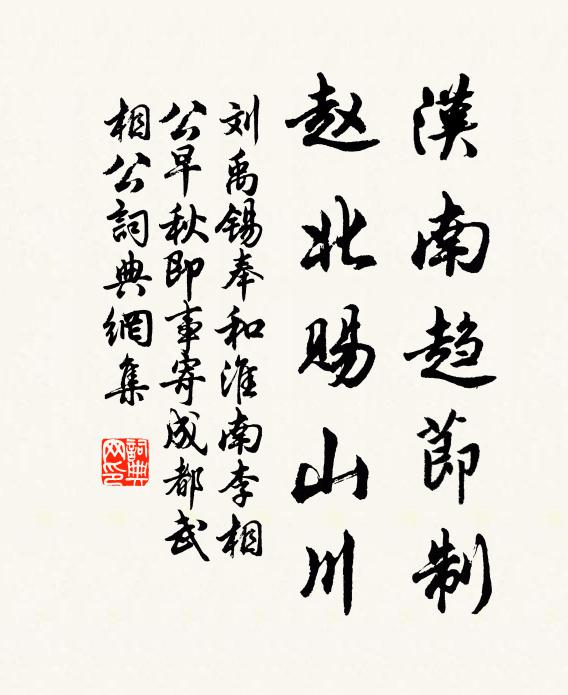 漢南趋節制
赵北赐山川
刘禹锡奉和淮南李相
公早秋即事寄成都武
相公詞典網集
詞典网印